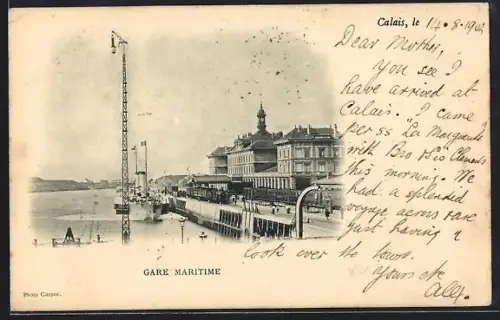 Calais, le 14.8.190
Dear Mother,
you see I
have arrived at
Calais. "I came
per ss La Marguerite
with Bro & Sis Clements
this morning. We
had a splendid
voyage across &
just having a
look over the town.
Yours etc
Alf.
GARE MARITIME
Photo Carpot.